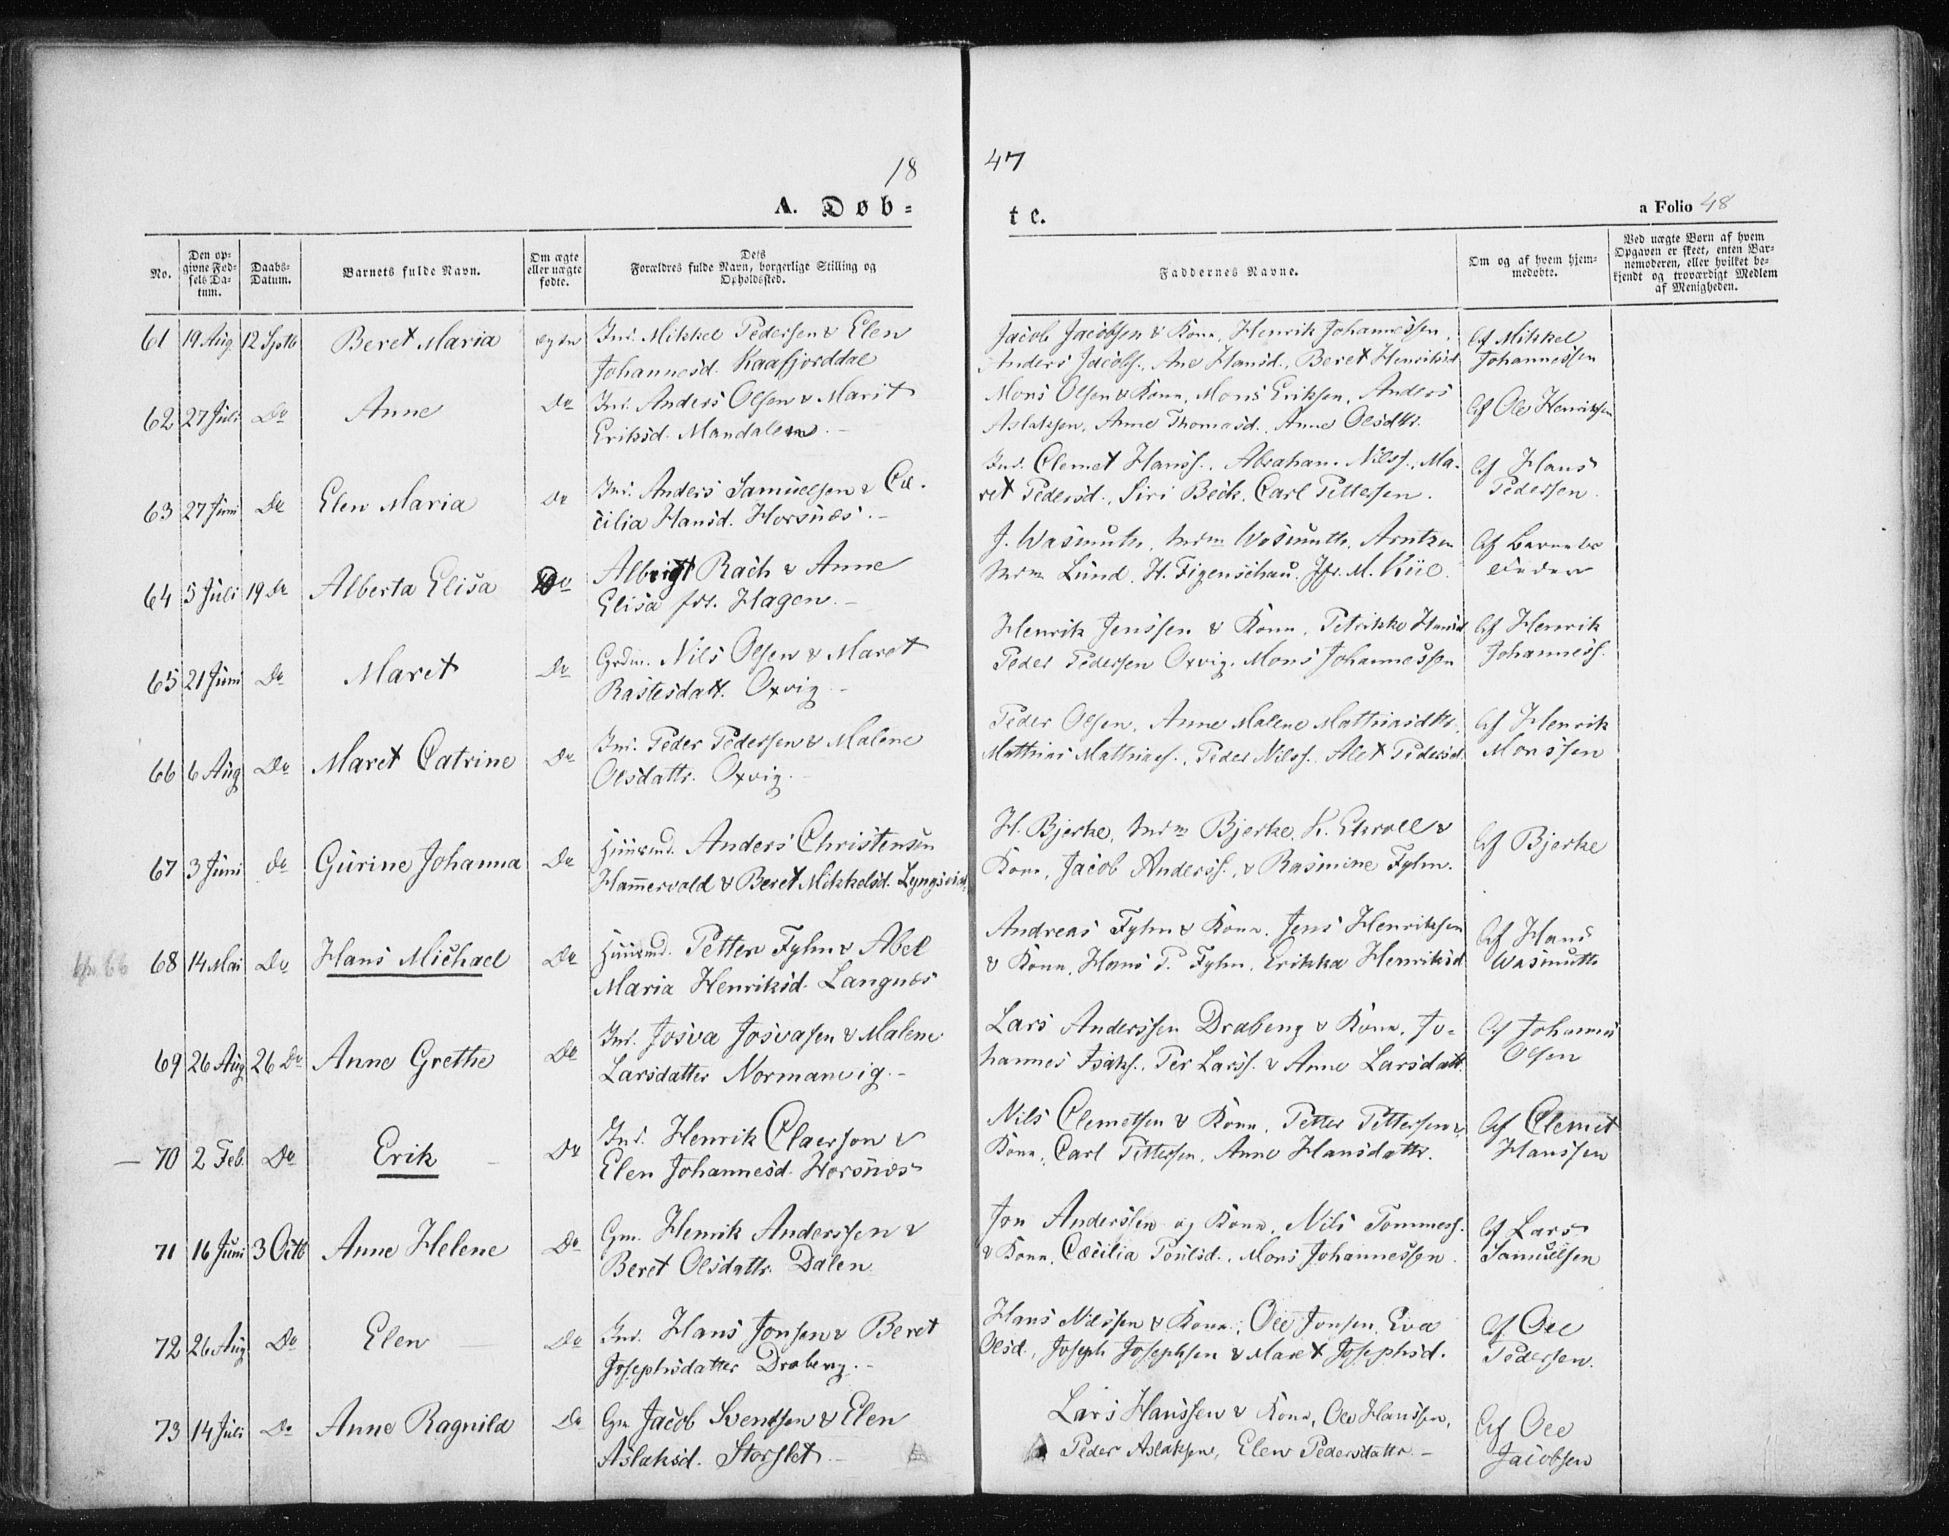 18 47
A. Døb-
te.
a Folio 48
No.
Den op-
givne Fød-
sels Da-
tum.
Daabs-
Datum.
Barnets fulde Navn.
Om ægte
eller uægte
fødte.
Dets
Forældres fulde Navn, borgerlige Stilling og
Opholdssted.
Faddernes Navne.
Om og af hvem hjem-
medøbte.
Ved uægte Børn af hvem
Opgaven er skeet, enten Bar-
nemoderen, eller hvilket be-
kjendt og troværdigt Medlem
af Menigheden.
61 19 Aug. 12 Septb Beret Maria Ind. Mikkel Pedersen & Elen
Johannesd. Kaafjorddal
Jacob Jacobsen & Kone, Henrik Johannessen,
Anders Jacobs., Ane Hansd., Beret Henriksd
Af Mikkel
Johannessen
62 27 Juli Do Anne Do Ind. Anders Olsen & Marit
Eriksd. Mandalen.
Mons Olsen & Kone, Mons Eriksen, Anders
Aslaksen, Anne Thomasd., Anne Olsdtr.
Af Ole Henriksen
63 27 Juni Do Elen Maria Do Ind. Anders Samuelsen & Cæ-
cilia Hansd. Horsnæs.
Ind. Clemet Hanss., Abraham Nilss., Ma-
ret Pedersd., Siri Beck, Carl Pettersen.
Af Hans
Pedersen.
64 5 Juli 19 Do Alberta Elisa Do Albrigt Rach & Anne
Elisa fød. Hagen.
J. Wasmuth, Mdm Wasmuth, Arntzen
Mdm Lund, H. Figenschau, Jfr. M. Kiil.
Af Barnets
Fader
65 21 Juni Do Maret Do Grdm. Nils Olsen & Maret
Rastesdatt. Oxvig.
Henrik Jenssen & Kone, Petrikke Hansd
Peder Pedersen Oxvig, Mons Johannessen
Af Henrik
Johanness.
66 6 Aug Do Maret Catrine Do Ind. Peder Pedersen & Malene
Olsdattr. Oxvig.
Peder Olsen, Anne Malene Mathiasdtr.
Mathias Mathiass., Peder Nilss., Alet Pedersd.
Af Henrik
Monssen
67 3 Juni do Gurine Johanna Do Huusmd. Anders Christensen
Hammervold & Beret Mikkelsd. Lyngseidet
H. Bjerke, Mdm Bjerke, K. Kroll &
Kone, Jacob Anderss., & Rasmine Fyhn.
Af Bjerke
68 14 Mai Do Hans Michael Do Huusmd. Petter Fyhn & Abel
Maria Henriksd. Langnæs
Andreas Fyhn & Kone, Jens Henriksen
& Kone, Hans P. Fyhn, Erikka Henriksd
Af Hans
Wasmuth
69 26 Aug 26 Do Anne Grethe Do Ind. Josva Josvasen & Malene
Larsdatter Normanvig.
Lars Anderssen Drabeng & Kone, Jo-
hannes Isaks., Per Larss. & Anne Larsdatt.
Af Johannes
Olsen
70 2 Feb. Do Erik Do Ind. Henrik Claerson &
Elen Johannesd. Horsnæs
Nils Clemetsen & Kone, Petter Pettersen &
Kone, Carl Pettersen, Anne Hansdattr.
Af Clemet
Hanssen
71 16 Juni 3 Octb Anne Helene Do Gm. Henrik Anderssen &
Beret Olsdattr. Dalen
Jon Anderssen og Kone, Nils Tommess.
& Kone, Cæcilia Poulsd., Mons Johannessen.
Af Lars
Samuelsen
72 26 Aug Do Elen Do Ind. Hans Jonsen & Beret
Josephsdatter Drabeng.
Hans Nilssen & Kone, Ole Jonsen, Eva
Olsd., Joseph Josephsen & Maret Josephsd.
Af Ole
Pedersen.
73 14 Juli Do Anne Ragnild Do Gm Jacob Svendsen & Elen
Aslaksd. Storslet.
Lars Hanssen & Kone, Ole Hanssen,
Peder Aslaksen, Elen Pedersdattr.
Af Ole
Jacobsen